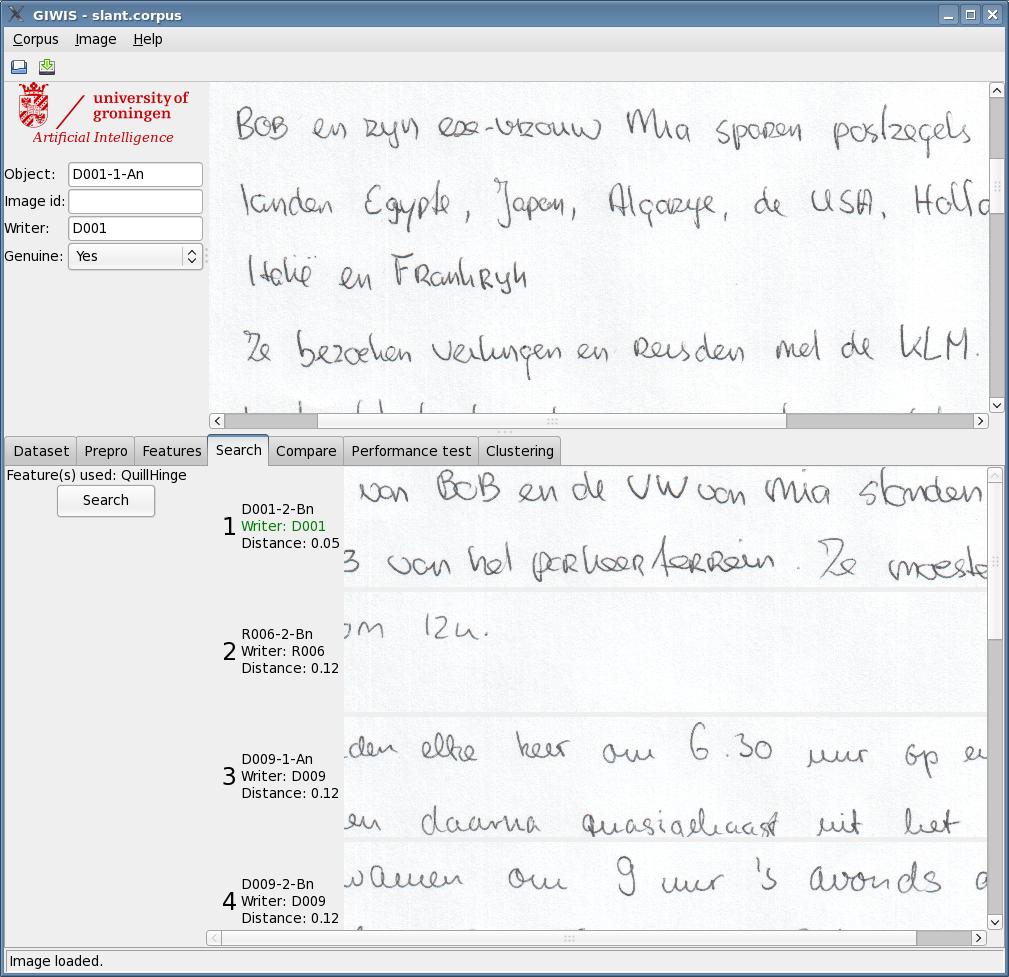 GIWIS - slant.corpus
Corpus Image Help
university of
groningen
Artificial Intelligence
Object: D001-1-An
Image id:
Writer: D001
Genuine: Yes
BOB en zyn exe-vrouw Mia sparen postzegels
landen Egypte, Japan, Algarye, de USA, Holla
Italië en FRankRyk
Ze bezoeken veilingen en Reisden met de KLM.
Dataset Prepro Features Search Compare Performance test Clustering
Feature(s) used: QuillHinge
Search
1
D001-2-Bn
Writer: D001
Distance: 0.05
van BOB en de VW van Mia stonden
3 van het parkeerterrein. Ze moeste
2
R006-2-Bn
Writer: R006
Distance: 0.12
om 12u.
3
D009-1-An
Writer: D009
Distance: 0.12
den elke keer om 6.30 uur op e
en daarna quasiaehaast uit het
4
D009-2-Bn
Writer: D009
Distance: 0.12
wamen om 9 uur 's avonds a
Image loaded.